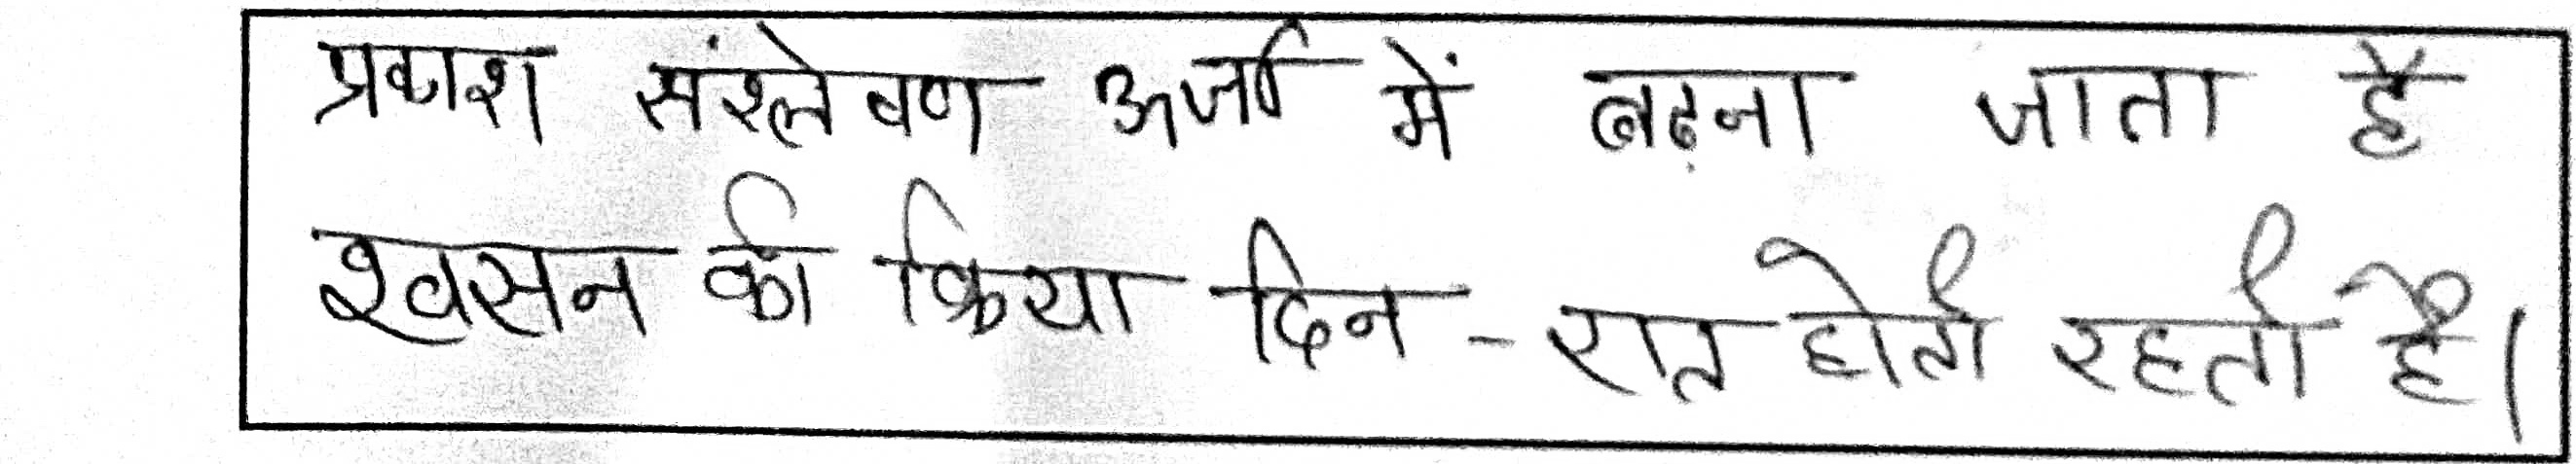 प्रकाश संश्लेषण ऊर्जा में बढ़ना जाता है
श्वसन की क्रिया दिन - रात होती रहती है।